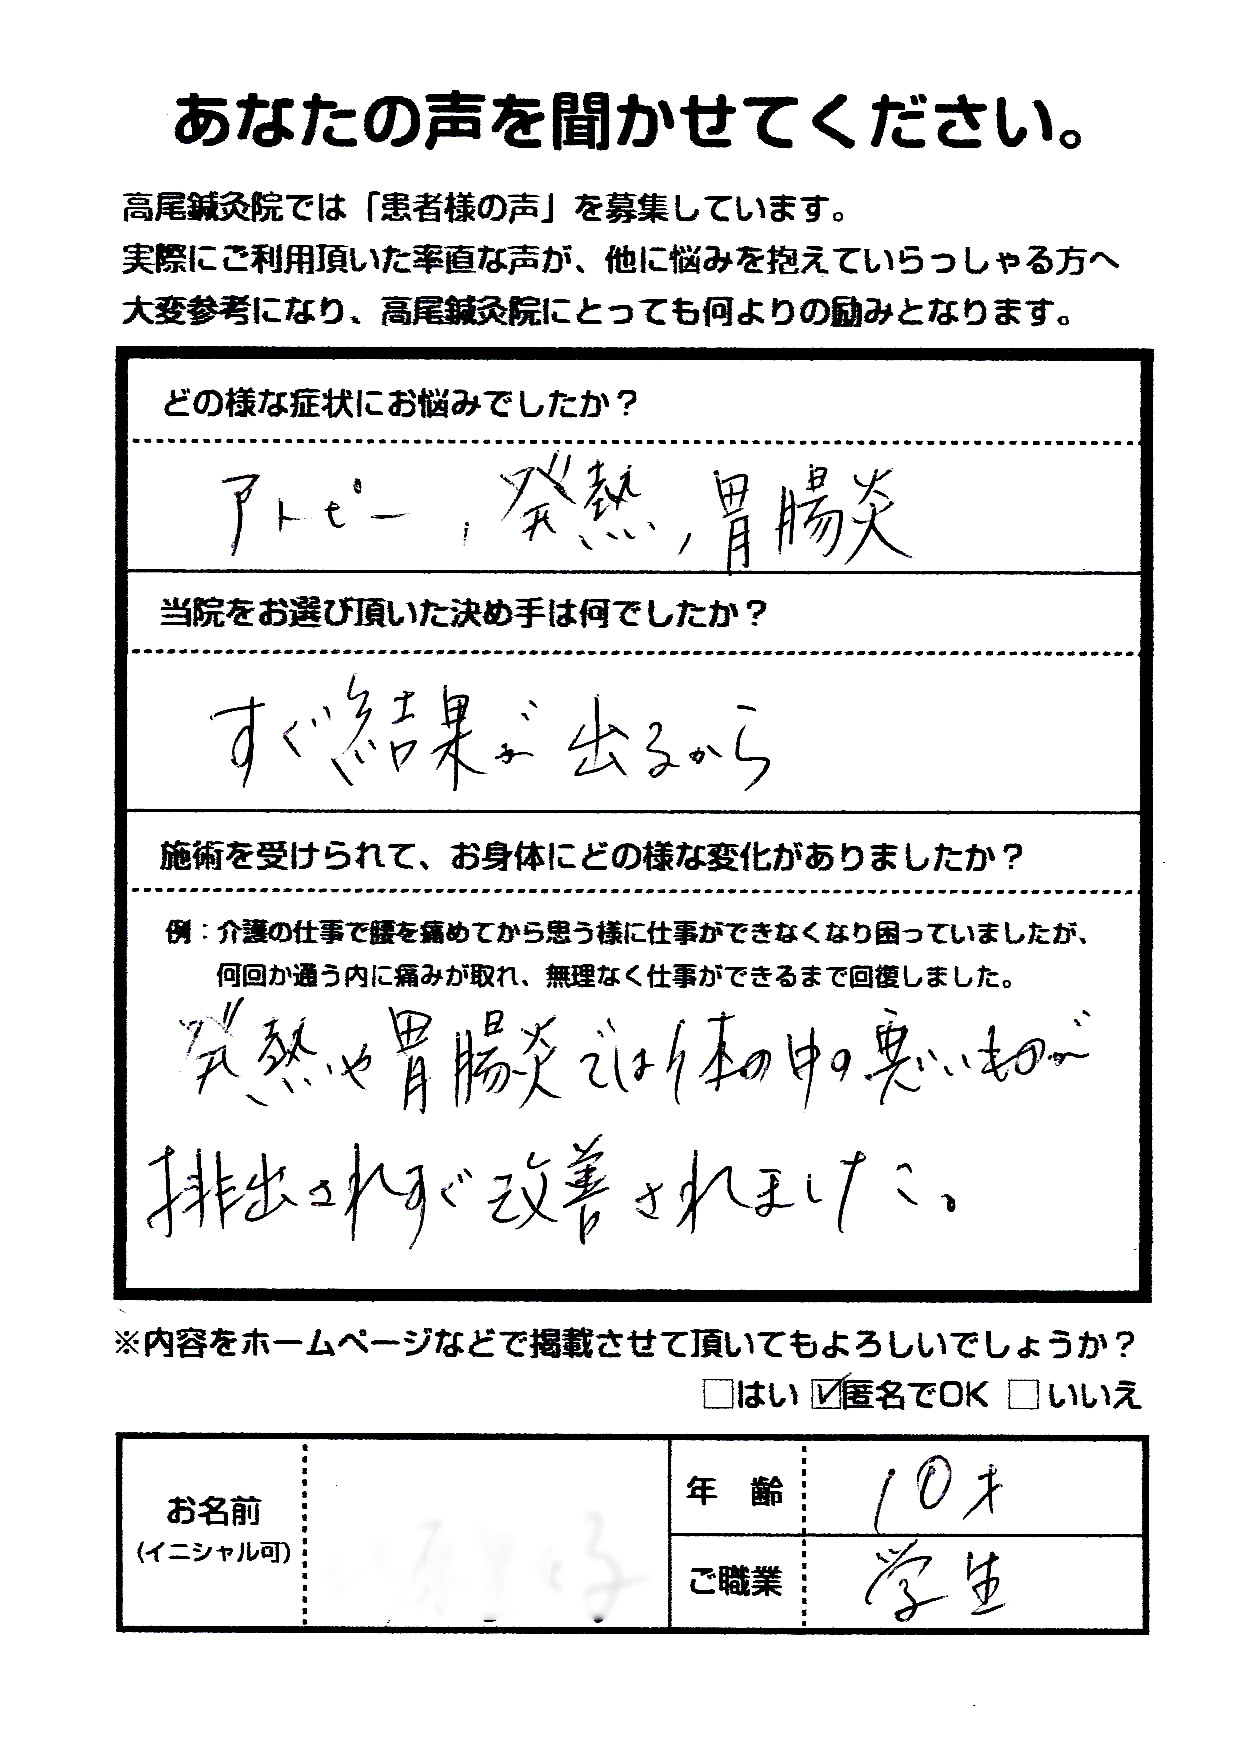 あなたの声を聞かせてください。
高尾鍼灸院では「患者様の声」を募集しています。
実際にご利用頂いた率直な声が、他に悩みを抱えていらっしゃる方へ
大変参考になり、高尾鍼灸院にとっても何よりの励みとなります。
どの様な症状にお悩みでしたか？
アトピー，発熱，胃腸炎
当院をお選び頂いた決め手は何でしたか？
すぐ結果が出るから
施術を受けられて、お身体にどの様な変化がありましたか？
例：介護の仕事で腰を痛めてから思う様に仕事ができなくなり困っていましたが、
何回か通う内に痛みが取れ、無理なく仕事ができるまで回復しました。
発熱や胃腸炎では体の中の悪いものが
排出されすぐ改善されました。
※内容をホームページなどで掲載させて頂いてもよろしいでしょうか？
□はい ☑匿名でOK □いいえ
お名前
(イニシャル可)
年 齢 10才
ご職業 学生